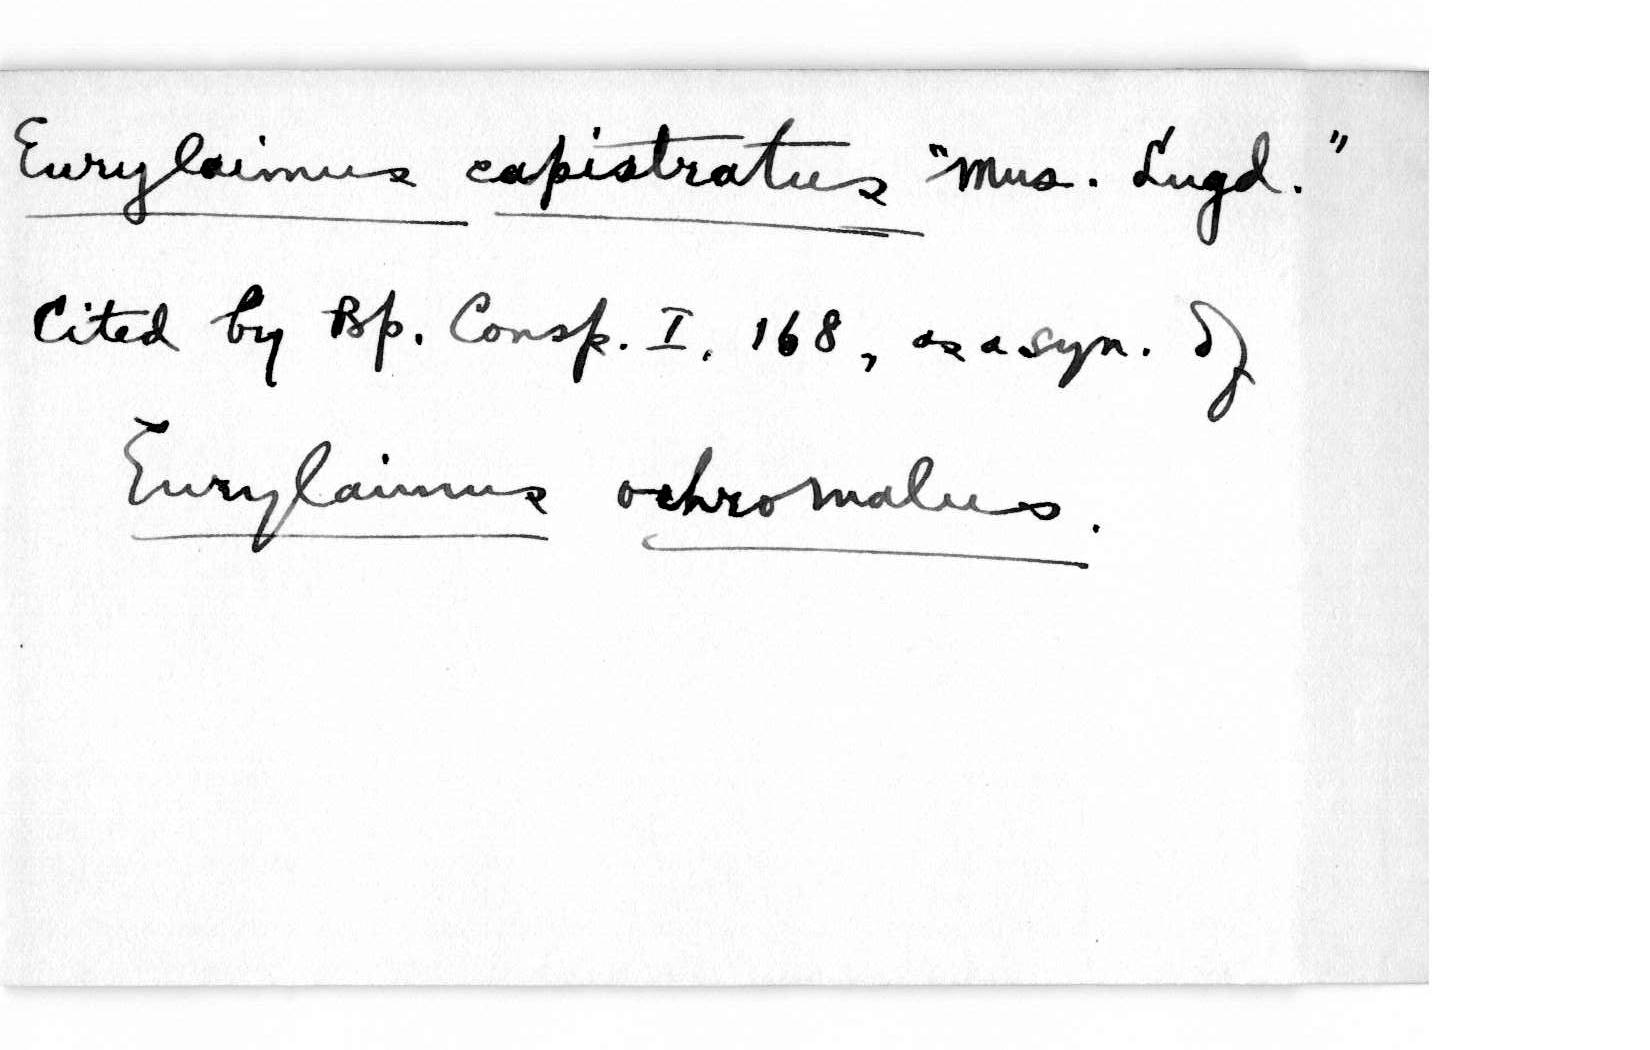 Eurylaimus capistratus "Mus. Lugd."
Cited by Bp. Consp. I, 168, as a syn. of
Eurylaimus ochromalus.